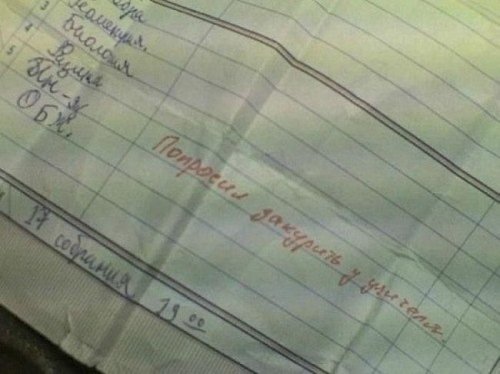 3 Геометрия
4 Биология
5 Физика
Ин-яз
ОБЖ.
Попросил закурить у учителя.
17 собрания 19 00